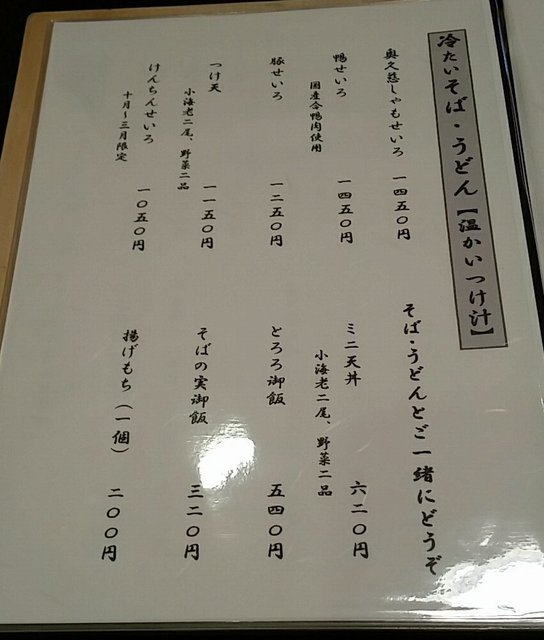 冷たいそば・うどん【温かいつけ汁】
奥久慈しゃもせいろ 一四五〇円
鴨せいろ 一四五〇円
国産合鴨肉使用
豚せいろ 一二五〇円
つけ天 一一五〇円
小海老二尾、野菜二品
けんちんせいろ 一〇五〇円
十月〜三月限定
そば・うどんとご一緒にどうぞ
ミニ天丼 六二〇円
小海老二尾、野菜二品
とろろ御飯 五四〇円
そばの実御飯 三二〇円
揚げもち（一個） 二〇〇円